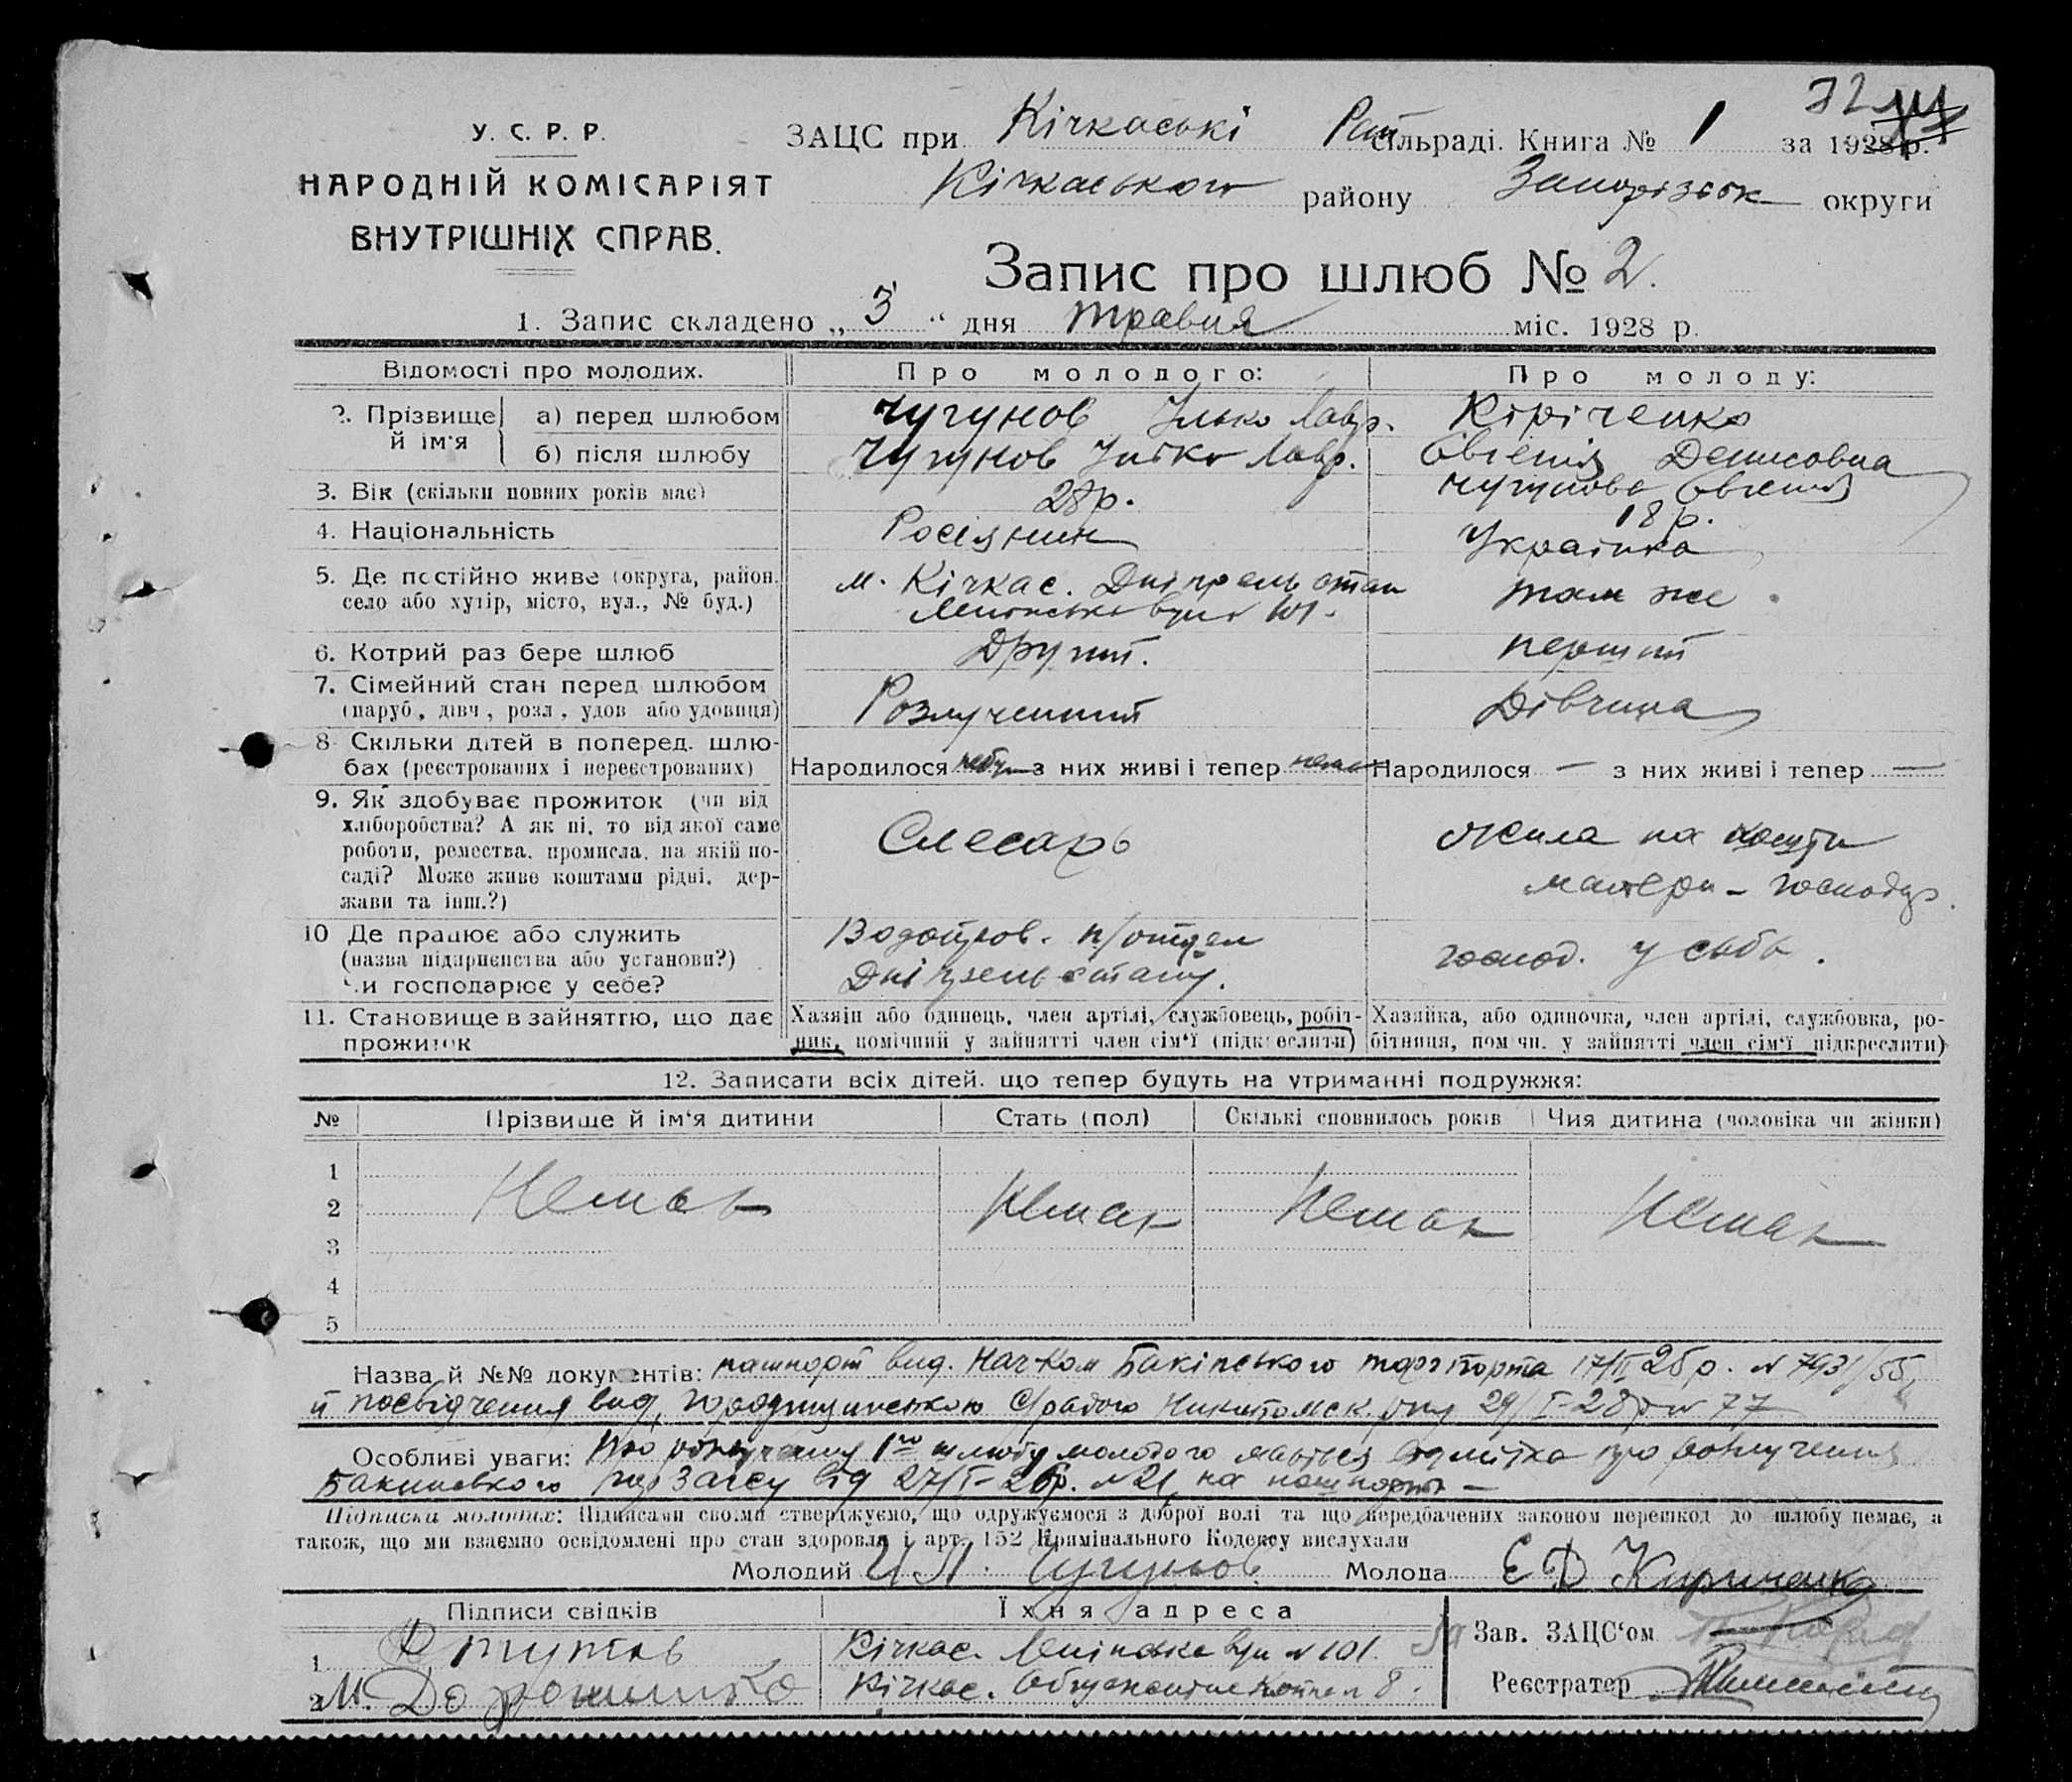 72
У. С. Р. Р.
НАРОДНІЙ КОМІСАРІЯТ
ВНУТРІШНІХ СПРАВ.
ЗАЦС при Кічкаські Рай сільраді. Книга № 1 за 1928 р.
Кічкаського району Запорізьк округи
Запис про шлюб № 2.
1. Запис складено „ 3 “ дня травня міс. 1928 р.
Відомості про молодих.
Про молодого:
Про молоду:
2. Прізвище й ім'я
а) перед шлюбом
Чугунов Ілько Лавр.
Кіріченко
Євгенія Денисовна
б) після шлюбу
Чугунов Ілько Лавр.
Чугунова Євгенія
3. Вік (скільки повних років має)
28 р.
18 р.
4. Національність
Росіянин
Українка
5. Де постійно живе (округа, район.
село або хутір, місто, вул., № буд.)
м. Кічкас. Дніпрельстан
Ленінська вул 101.
там же.
6. Котрий раз бере шлюб
Другий.
перший
7. Сімейний стан перед шлюбом
(паруб, дівч, розл, удов або удовиця)
Розлучений
Дівчина
8 Скільки дітей в поперед. шлю-
бах (реєстрованих і нереєстрованих)
Народилося небул з них живі і тепер нема
Народилося — з них живі і тепер —
9. Як здобуває прожиток (чи від
хліборобства? А як ні, то від якої саме
роботи, ремества, промисла, на якій по-
саді? Може живе коштами рідні, дер-
жави та інш.?)
Слесарь
жила на кошти
матери – господ.
10 Де працює або служить
(назва підприєнства або установи?)
Чи господарює у себе?
Водопров. п/отдел
Дніпрельстану.
господ. у себе.
11. Становище в зайняттю, що дає
прожиток
Хазяїн або одинець, член артілі, службовець, робіт-
ник, помічний у зайнятті член сім'ї (підкреслити)
Хазяйка, або одиночка, член артілі, службовка, ро-
бітниця, пом чн. у зайнятті член сім'ї підкреслити)
12. Записати всіх дітей, що тепер будуть на утриманні подружжя:
№ Прізвище й ім'я дитини Стать (пол) Скількі сповнилось років Чия дитина (чоловіка чи жінки)
1
2 Немає Немає Немає Немає
3
4
5
Назва й №№ документів: пашпорт вид. Нач-ком Бакінського торгпорта 17/II 25 р. № 7931/55,
й посвідчення вид. сірадою 29/I-28 р № 77
Особливі уваги: Про розлучення 1го шлюбу молодого мається відмітка про розлучення
Бакинского Загсу від 27/I-26р. № 21, на пашпорті —
Підписи молодих: Підписами своїми стверджуємо, що одружуємося з доброї волі та що передбачених законом перешкод до шлюбу немає, а
також, що ми взаємно освідомлені про стан здоровля і арт. 152 Кримінального Кодексу вислухали
Молодий И Л. Чугунов. Молода Е Д Кириченко
Підписи свідків
Їхня адреса
1
Кічкас. Ленінська вул № 101.
2 М. Дорошенко
Кічкас. 8.
За Зав. ЗАЦС'ом
Реєстратер